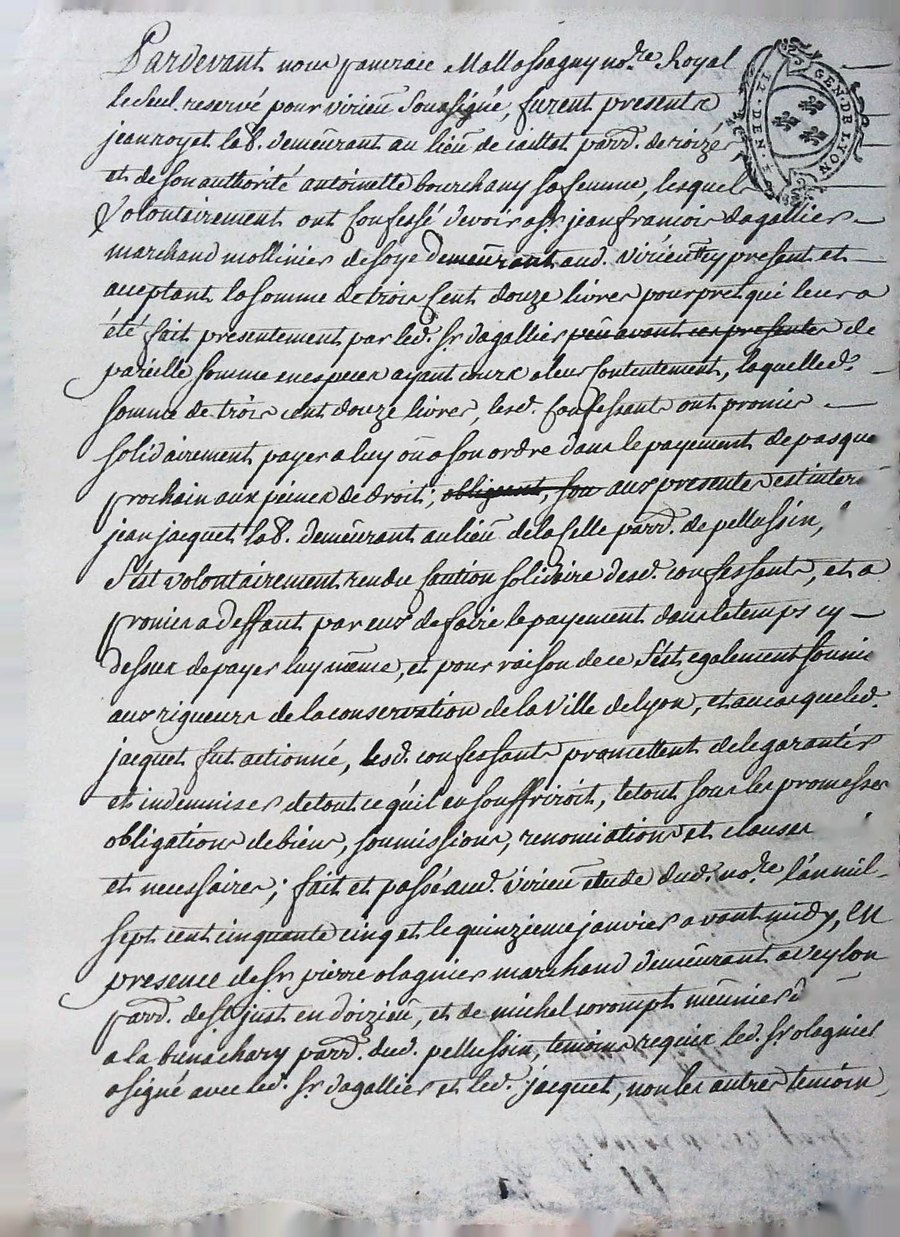 Pardevant nous pancrace Mallassagny no.re Royal
le seul reservé pour virieu soussigné, furent presents
jean royet lab. demeurant au lieu de caillat parr. de roizé
et de son authorité antoinette bourchany sa femme, lesquels
volontairement ont confessé devoir a sr. jean francois dagallier
marchand mollinier de soye demeurant aud. virieu icy present et
acceptant la somme de trois cent douze livres pour pret qui leur a
été fait presentement par led. sr. dagallier peu avant ces presentes de
pareille somme en especes ayant cours a leur contentement, laquelle d.
somme de trois cent douze livres, lesd. confessants ont promis
solidairement payer a luy ou a son ordre dans le payement de pasques
prochain aux peines de droit; obligeant, son aux presentes est inter
jean jacquet lab. demeurant au lieu de la selle parr. de pellussin,
s'est volontairement rendu caution solidaire desd. confessants, et a
promis a deffaut par eux de faire le payement dans le temps cy
dessus de payer luy même, et pour raison de ce s'est egalement soumis
aux rigueurs de la conservation de la ville de lyon, et au cas que led.
jacquet fut actionné, lesd. confessants promettent de le garantir
et indemniser de tout ce qu'il en souffriroit, le tout sous les promesses
obligations de biens, soumissions, renonciations et clauses
et necessaires; fait et passé aud. virieu etude dud. no.re l'an mil
sept cent cinquante cinq et le quinzieme janvier avant midy, en
presence de sr. pierre olagnier marchand demeurant a veylon
parr. de st. just en doizieu, et de michel corompt meûnier
a la bunachary parr. dud. pellussin, temoins requis led. sr. olagnier
a signé avec led. sr. dagallier et led. jacquet, non les autres temoin
GEN. DE LYON
II. DEN. F.